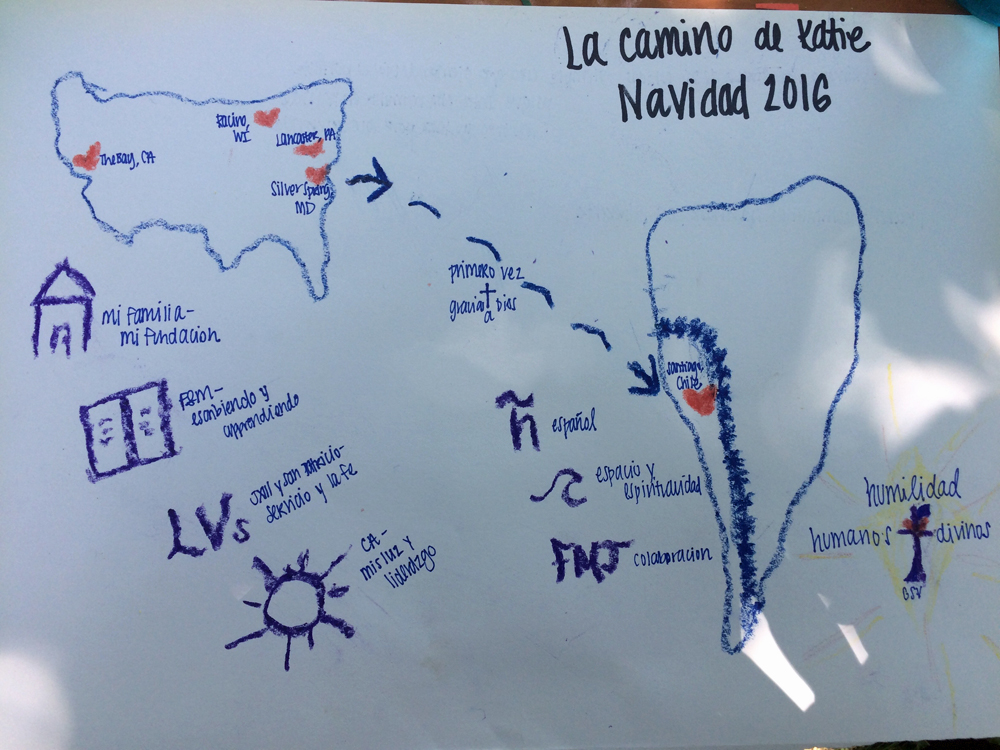 La camino de Katie
Navidad 2016
Racine,
WI
Lancaster, PA
The Bay, CA
Silver Spring,
MD
primero vez
gracias
a
Dios
mi familia-
mi fundacion
FSM-
escribiendo y
apprendiendo
LVs
JXIII y san
servicio y la fe
CA-
mis luz y
liderazgo
Santiago,
Chile
ñ
español
espacio y
espiritualidad
FMJ
colaboracion
humilidad
humanos
divinas
CSV